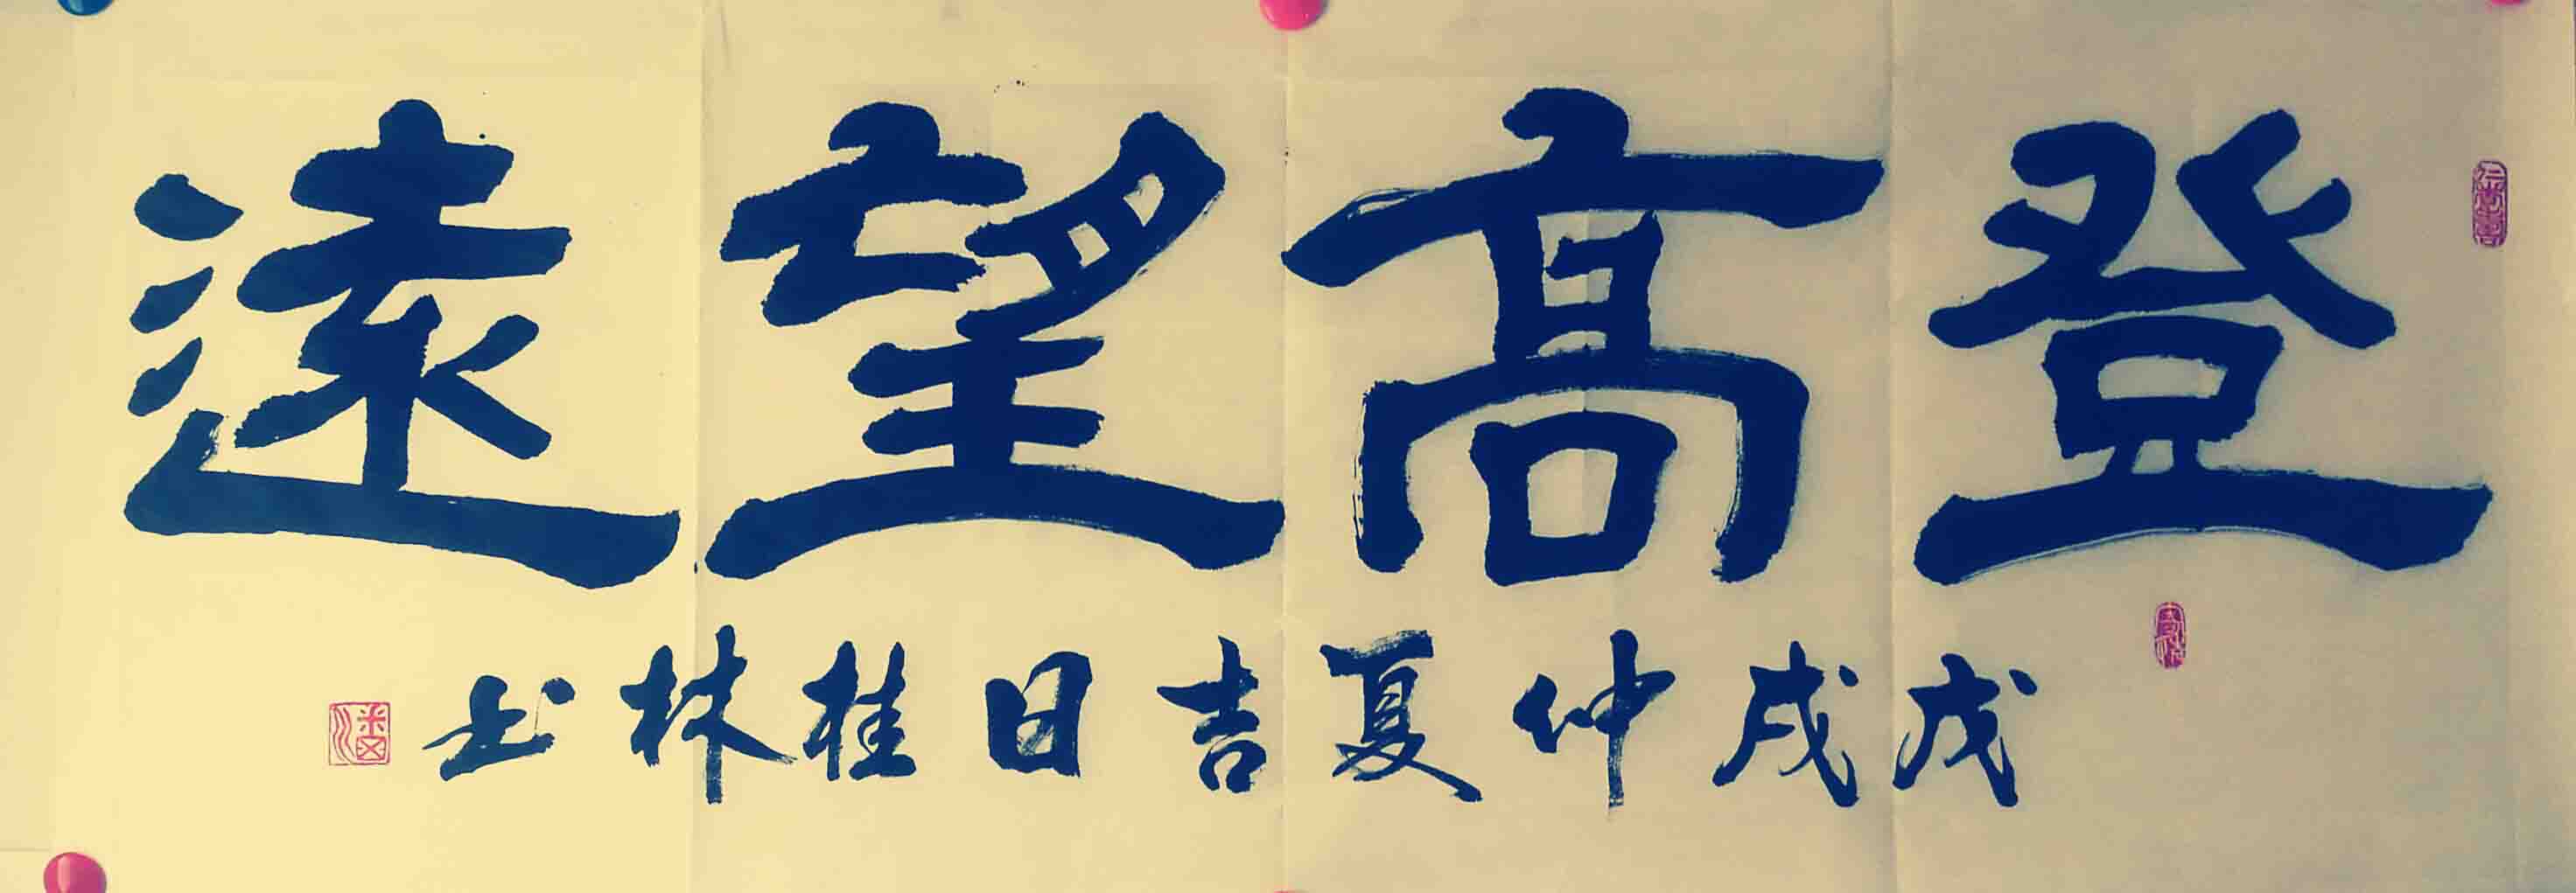 登髙望遠
戊戌仲夏吉日桂林书
潘